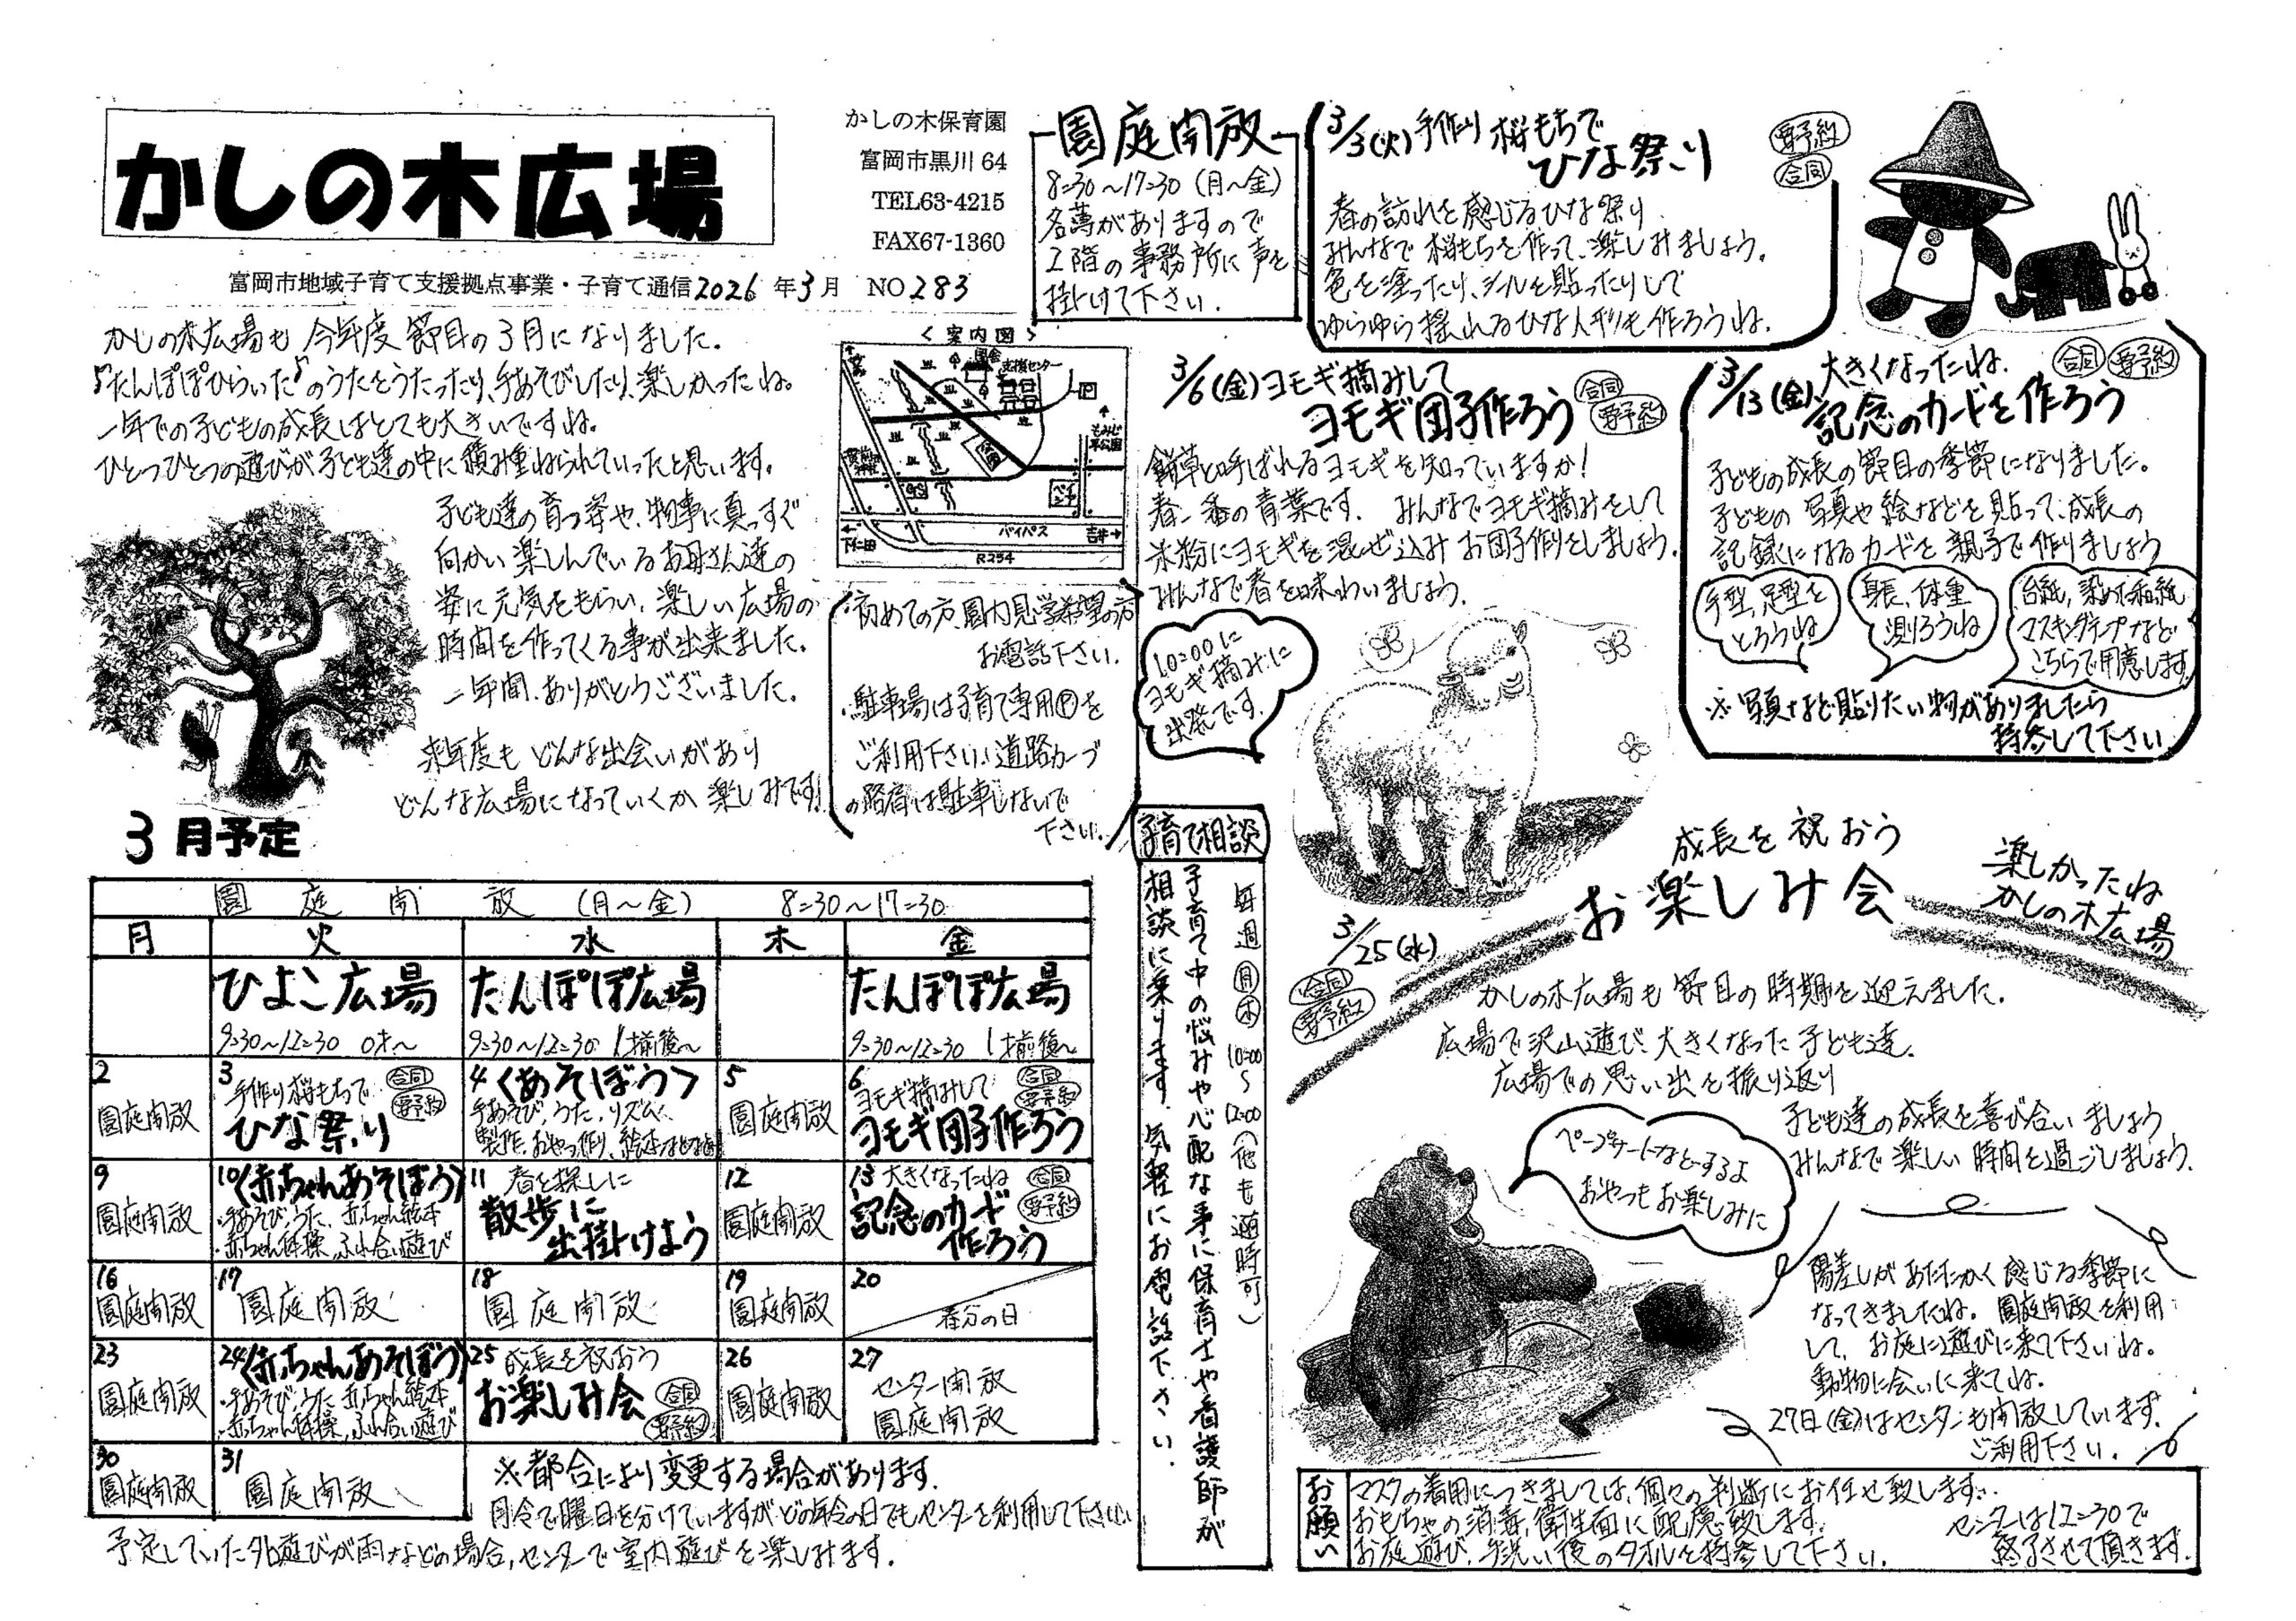 かしの木広場
かしの木保育園
富岡市黒川 64
TEL63-4215
FAX67-1360
富岡市地域子育て支援拠点事業・子育て通信2026年3月 NO283
かしの木広場も今年度節目の3月になりました。
♪たんぽぽひらいた♪のうたをうたったり、手あそびしたり、楽しかったね。
一年での子どもの成長はとても大きいですね。
ひとつひとつの遊びが子ども達の中に積み重ねられていったと思います。
子ども達の育つ姿や、物事に真っすぐ
向かい楽しんでいるお母さん達の
姿に元気をもらい、楽しい広場の
時間を作ってくる事が出来ました。
一年間、ありがとうございました。
来年度もどんな出会いがあり
どんな広場になっていくか楽しみです!
<案内図>
支援センター
もみじ平公園
GS
バイパス
下仁田
吉井
R254
・初めての方、園内見学希望の方
お電話下さい。
・駐車場は子育て専用Ⓟを
ご利用下さい、道路カーブ
の路肩は駐車しないで
下さい。
園庭開放
8:30～17:30(月～金)
名簿がありますので
2階の事務所に声を
掛けて下さい。
3/3(火)手作り桜もちで
ひな祭り
要予約
合同
春の訪れを感じるひな祭り
みんなで桜もちを作って、楽しみましょう。
色を塗ったり、シールを貼ったりして
ゆらゆら揺れるひな人形も作ろうね。
3/6(金)ヨモギ摘みして
ヨモギ団子作ろう
合同
要予約
餅草と呼ばれるヨモギを知っていますか!
春一番の青葉です。みんなでヨモギ摘みをして
米粉にヨモギを混ぜ込みお団子作りをしましょう。
みんなで春を味わいましょう。
10:00に
ヨモギ摘みに
出発です。
3/13(金)大きくなったね。
記念のカードを作ろう
合同
要予約
子どもの成長の節目の季節になりました。
子どもの写真や絵などを貼って、成長の
記録になるカードを親子で作りましょう
手型、足型を
とろうね
身長、体重
測ろうね
台紙、染めた和紙
マスキングテープなど
こちらで用意します
※写真など貼りたい物がありましたら
持参して下さい
成長を祝おう
お楽しみ会
3/25(水)
合同
要予約
楽しかったね
かしの木広場
かしの木広場も節目の時期を迎えました。
広場で沢山遊び、大きくなった子ども達。
広場での思い出を振り返り
子ども達の成長を喜び合いましょう
みんなで楽しい時間を過ごしましょう。
ペープサートなどするよ
おやつもお楽しみに
陽差しがあたたかく感じる季節に
なってきましたね。園庭開放を利用
して、お庭に遊びに来て下さいね。
動物に会いに来てね。
27日(金)はセンターも開放しています。
ご利用下さい。
子育て相談
毎週月木10:00～12:00(他も随時可)
子育て中の悩みや心配な事に保育士や看護師が
相談に乗ります。気軽にお電話下さい。
3月予定
園庭開放(月～金) 8:30～17:30
月 火 水 木 金
ひよこ広場
9:30～12:30 0才～
たんぽぽ広場
9:30～12:30 1才前後～
たんぽぽ広場
9:30～12:30 1才前後～
2 園庭開放
3 手作り桜もちで ひな祭り 合同 要予約
4 <あそぼう>
手あそび、うた、リズム、
製作、おやつ作り、絵本など
5 園庭開放
6 ヨモギ摘みして ヨモギ団子作ろう 合同 要予約
9 園庭開放
10 <赤ちゃんあそぼう>
・手あそび、うた、赤ちゃん絵本
・赤ちゃん体操、ふれ合い遊び
11 春を探しに 散歩に出掛けよう
12 園庭開放
13 大きくなったね 記念のカード作ろう 合同 要予約
16 園庭開放
17 園庭開放
18 園庭開放
19 園庭開放
20 春分の日
23 園庭開放
24 <赤ちゃんあそぼう>
・手あそび、うた、赤ちゃん絵本
・赤ちゃん体操、ふれ合い遊び
25 成長を祝おう お楽しみ会 合同 要予約
26 園庭開放
27 センター開放 園庭開放
30 園庭開放
31 園庭開放
※都合により変更する場合があります。
月令で曜日を分けていますがどの年令の日でもセンターを利用して下さい。
予定していた外遊びが雨などの場合、センターで室内遊びを楽しみます。
お願い
マスクの着用につきましては、個々の判断にお任せ致します。
おもちゃの消毒、衛生面に配慮致します。
お庭遊び、手洗い後のタオルを持参して下さい。
センターは12:30で
終了させて頂きます。